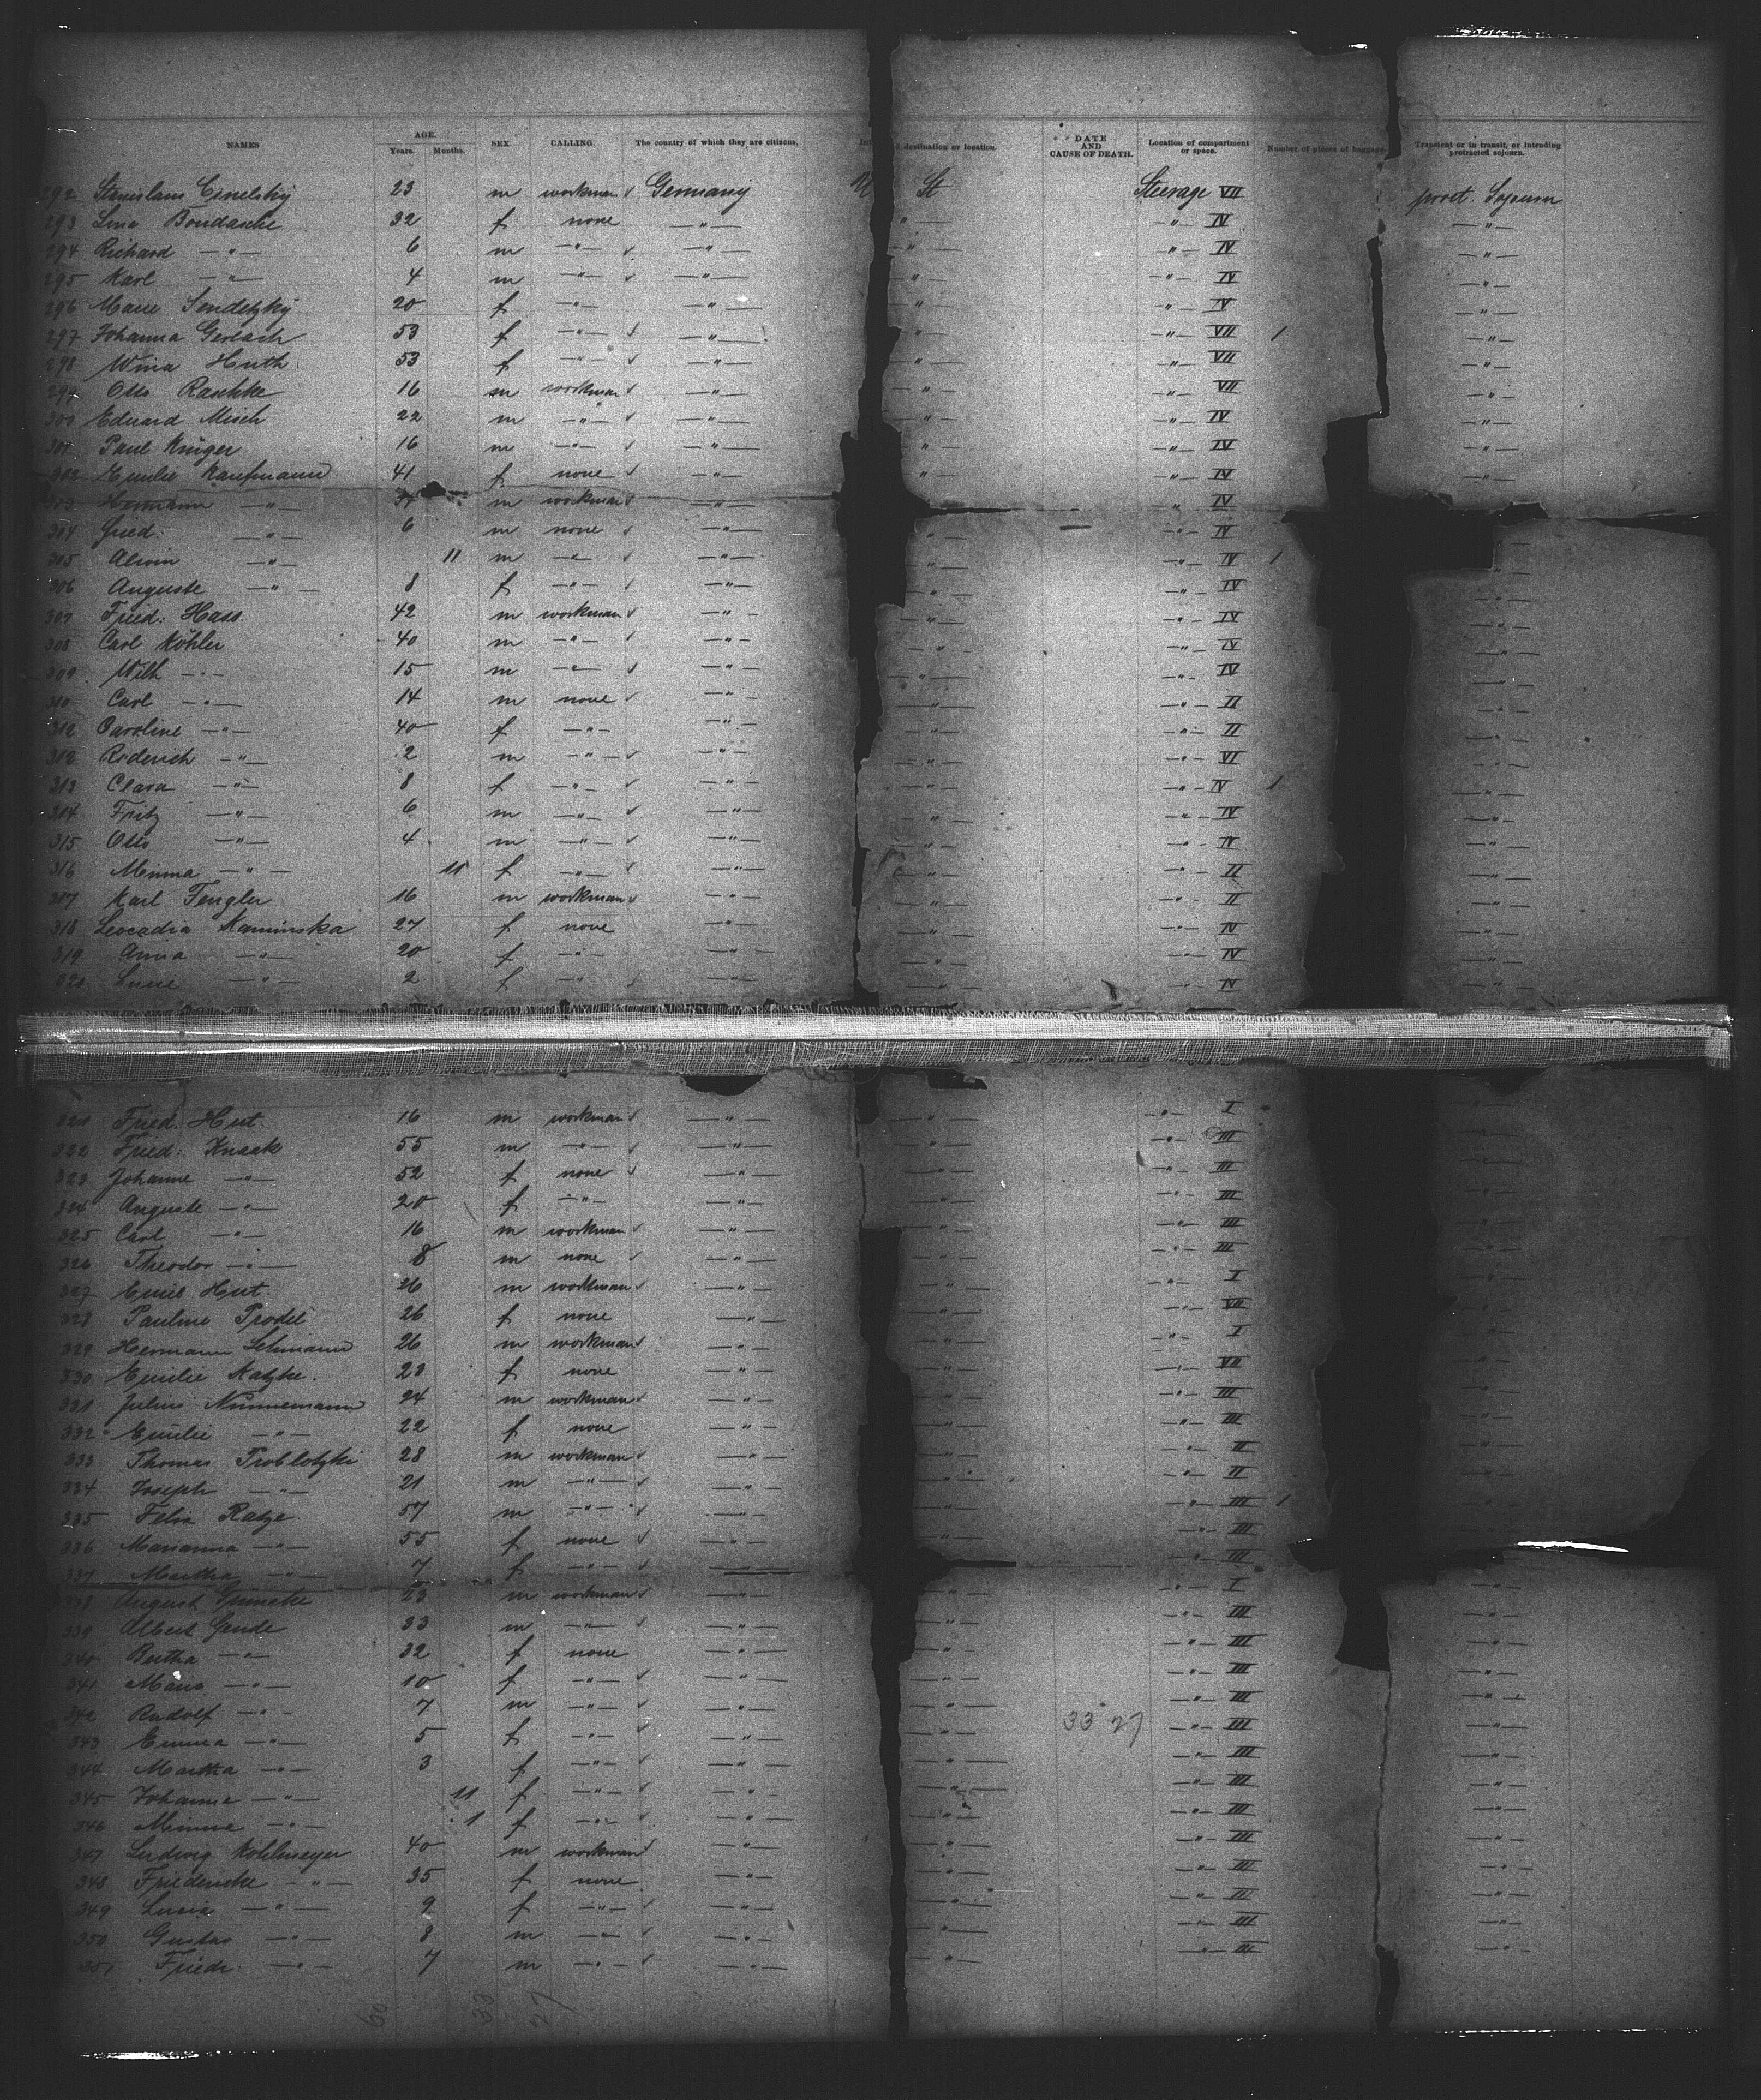 NAMES AGE. Years. Months. SEX. CALLING. The country of which they are citizens, destination or location. DATE AND CAUSE OF DEATH. Location of compartment or space. Number of pieces of baggage Transient or in transit, or intending protracted sojourn.
292 23 m workman ✓ Germany U St Steerage VII prot. Sojourn
293 Lina 32 f none —"— " —"— IV —"—
294 Richard —"— 6 m —"— ✓ —"— —"— —"— IV —"—
295 Karl —"— 4 m —"— ✓ —"— "— —"— IV —"—
296 Marie Sendetzky 20 f —"— —"— "— —"— IV —"—
297 Johanna Gerlach 53 f —"— ✓ —"— "— —"— VII 1 —"—
298 Wina Huth 53 f —"— ✓ —"— "— —"— VII —"—
299 Otto Raschke 16 m workman ✓ —"— "— —"— VII —"—
300 Eduard Misch 22 m —"— ✓ —"— "— —"— IV —"—
301 Paul Krüger 16 m —"— ✓ —"— "— —"— IV —"—
302 Emilie Kaufmann 41 f none ✓ —"— "— —"— IV —"—
303 Hermann —"— m workman ✓ —"— " IV
304 Gued. —"— 6 m none ✓ —"— —"— —"— IV —
305 Alwin —"— 11 m —"— ✓ —"— —"— —"— IV 1 "—
306 Auguste —"— 8 f —"— ✓ —"— —"— —"— IV —"—
307 Fried. Hass 42 m workman ✓ —"— —"— —"— IV —"—
308 Carl Köhler 40 m —"— ✓ —"— —"— —"— IV —"—
309 Wilh —"— 15 m —"— ✓ —"— —"— —"— IV —"—
310 Carl —"— 14 m none ✓ —"— —"— —"— II —"—
312 Caroline —"— 40 f —"— —"— —"— —"— II —"—
312 Roderich —"— 2 m —"— ✓ —"— —"— —"— VI —"—
313 Clara —"— 8 f —"— ✓ —"— —"— —"— IV 1 —"—
314 Fritz —"— 6 m —"— ✓ —"— —"— —"— IV —"—
315 Otto —"— 4 m —"— ✓ —"— —"— —"— IV —"—
316 Minna —"— 11 f —"— ✓ —"— —"— —"— II —"—
317 Karl Fengler 16 m workman ✓ —"— —"— —"— II —"—
318 Leocadia Kaminska 27 f none —"— —"— —"— IV —"—
319 Anna —"— 20 f —"— —"— —"— —"— IV —"—
320 Lucie —"— 2 f —"— ✓ —"— —"— —"— IV —"—
321 Fried. Hut. 16 m workman ✓ —"— —"— —"— I —"—
322 Fried. Knaak 55 m —"— ✓ —"— —"— —"— III —"—
323 Johanne —"— 52 f none ✓ —"— —"— —"— III —"—
324 Auguste —"— 20 f —"— —"— —"— —"— III —"—
325 Carl —"— 16 m workman ✓ —"— —"— —"— III —"—
326 Theodor —"— 8 m none ✓ —"— —"— —"— III —"—
327 Emil Hut. 26 m workman ✓ —"— —"— —"— I —"—
328 Pauline 26 f none —"— —"— —"— VII —"—
329 Hermann Lehmann 26 m workman ✓ —"— —"— —"— I —"—
330 Emilie Katzke. 23 f none —"— —"— —"— VII —"—
331 Julius Nünnemann 24 m workman ✓ —"— —"— —"— III —"—
332 Emilie —"— 22 f none —"— —"— —"— III —"—
333 Thomas 28 m workman ✓ —"— —"— —"— II —"—
334 Joseph —"— 21 m —"— ✓ —"— —"— —"— II —"—
335 Felix Ratze 57 m —"— ✓ —"— —"— —"— III 1 —"—
336 Marianna —"— 55 f none ✓ —"— —"— —"— III
337 Martha —"— 7 f —"— ✓ —"— III
338 August 23 m workman ✓ —"— —"— —"— I —"—
339 Albert Gende 33 m —"— ✓ —"— —"— —"— III —"—
340 Bertha —"— 32 f none —"— —"— —"— III —"—
341 Marie —"— 10 f —"— ✓ —"— —"— —"— III —"—
342 Rudolf —"— 7 m —"— ✓ —"— —"— —"— III —"—
343 Emma —"— 5 f —"— ✓ —"— —"— 33 27 —"— III —"—
344 Martha —"— 3 f —"— ✓ —"— —"— —"— III —"—
345 Johanne —"— 11 f —"— ✓ —"— —"— —"— III —"—
346 Minna —"— 1 f —"— ✓ —"— —"— —"— III —"—
347 Ludwig Kohlmeyer 40 m workman ✓ —"— —"— —"— III —"—
348 Friedericke —"— 35 f none —"— —"— —"— III —"—
349 —"— 9 f —"— ✓ —"— —"— —"— III —"—
350 Gustav —"— 8 m —"— ✓ —"— —"— —"— III —"—
351 Friedr. —"— 7 m —"— ✓ —"— —"— —"— III —"—
60 33 27